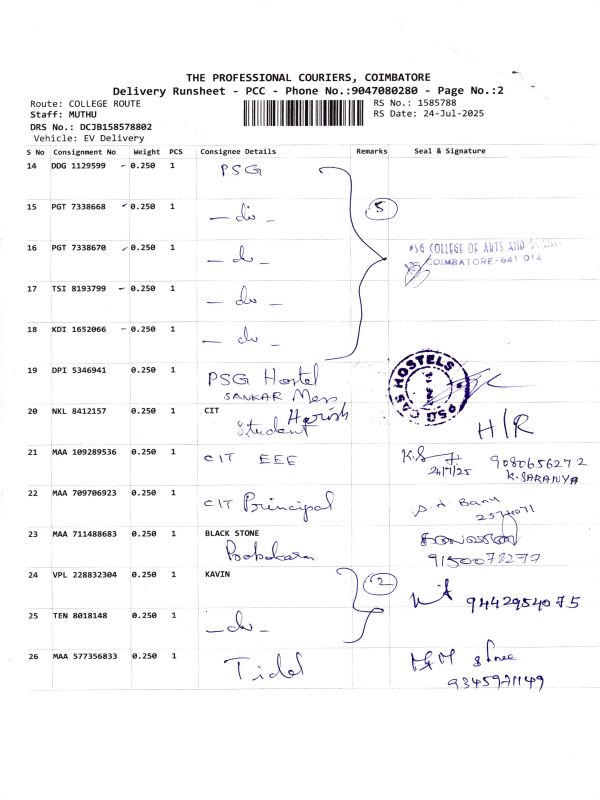 THE PROFESSIONAL COURIERS, COIMBATORE
Delivery Runsheet - PCC - Phone No.:9047080280 - Page No.:2
Route: COLLEGE ROUTE
Staff: MUTHU
DRS No.: DCJB158578802
Vehicle: EV Delivery
RS No.: 1585788
RS Date: 24-Jul-2025
S No Consignment No Weight PCS Consignee Details Remarks Seal & Signature
14 DDG 1129599 0.250 1 PSG
15 PGT 7338668 0.250 1 - do - 5
16 PGT 7338670 0.250 1 - do - PSG COLLEGE OF ARTS AND SCIENCE
COIMBATORE-641 014
17 TSI 8193799 0.250 1 - do -
18 KDI 1652066 0.250 1 - do -
19 DPI 5346941 0.250 1 PSG Hostel
SANKAR Mess
HOSTELS
20 NKL 8412157 0.250 1 CIT Harish
Student
H/R
21 MAA 109289536 0.250 1 CIT EEE
24/7/25 9080656272
K. SARANYA
22 MAA 709706923 0.250 1 CIT Principal
2574071
23 MAA 711488683 0.250 1 BLACK STONE
24 VPL 228832304 0.250 1 KAVIN 2
9442984075
25 TEN 8018148 0.250 1 - do -
26 MAA 577356833 0.250 1 Tidel